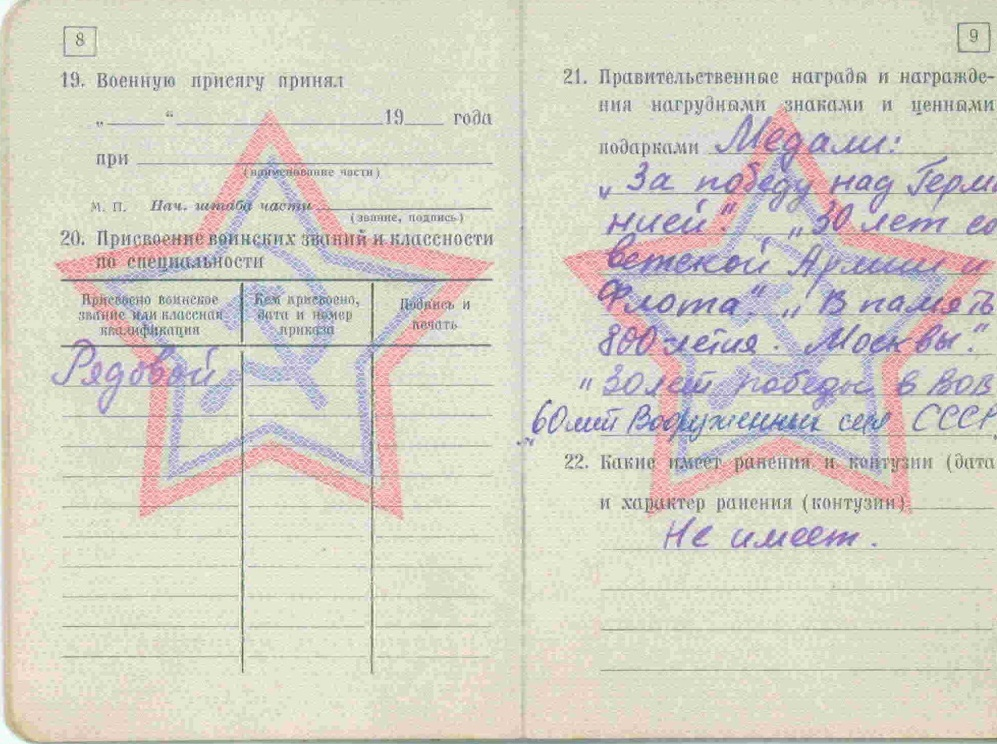 8
19. Военную присягу принял
„ “ 19 года
при
(наименование части)
М. П. Нач. штаба части
(звание, подпись)
20. Присвоение воинских званий и классности
по специальности
Присвоено воинское звание или классная квалификация
Кем присвоено, дата и номер приказа
Подпись и печать
Рядовой
9
21. Правительственные награды и награжде-
ния нагрудными знаками и ценными
подарками Медали:
„За победу над Герма
нией". „30 лет со
ветской Армии и
Флота". „В память
800-летия. Москвы".
"30 лет победы в ВОВ
„60 лет Вооруженных сил СССР
22. Какие имеет ранения и контузии (дата
и характер ранения (контузии)
Не имеет.